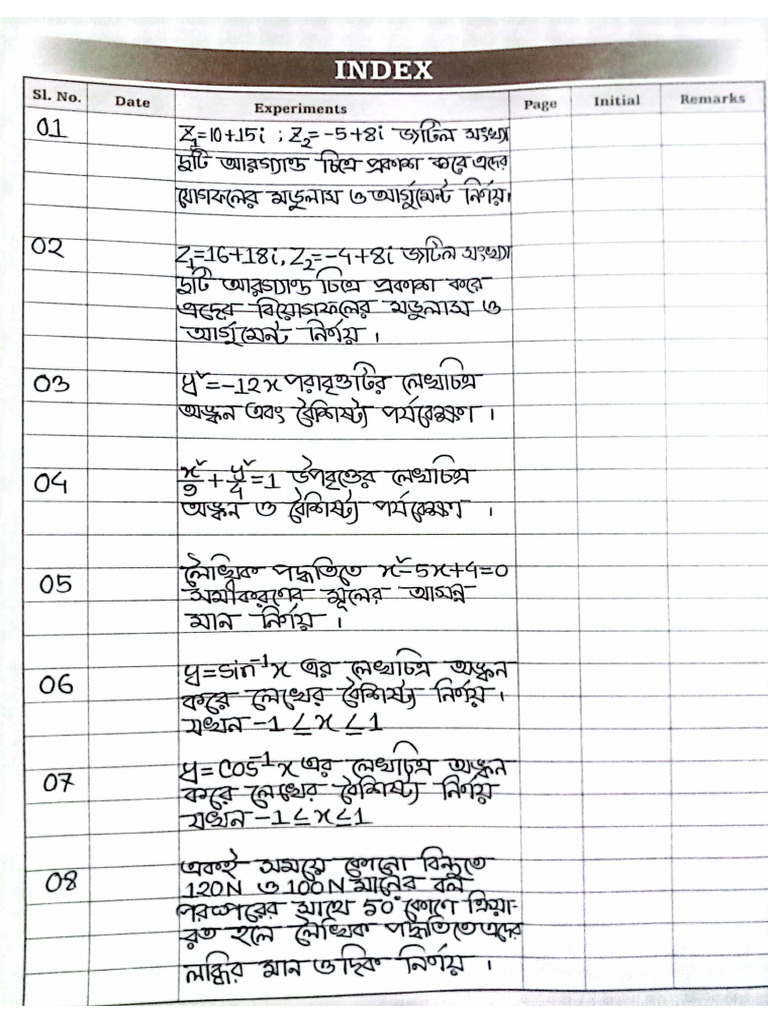 INDEX
Sl. No. Date Experiments Page Initial Remarks
01 Z₁=10+15i ; Z₂=-5+8i জটিল সংখ্যা
দুটি আরগ্যান্ড চিত্রে প্রকাশ করে এদের
যোগফলের মডুলাস ও আর্গুমেন্ট নির্ণয়।
02 Z₁=16+18i, Z₂=-4+8i জটিল সংখ্যা
দুটি আরগ্যান্ড চিত্রে প্রকাশ করে
এদের বিয়োগফলের মডুলাস ও
আর্গুমেন্ট নির্ণয় ।
03 y²=-12x পরাবৃত্তটির লেখচিত্র
অঙ্কন এবং বৈশিষ্ট্য পর্যবেক্ষণ ।
04 x²/9+y²/4=1 উপবৃত্তের লেখচিত্র
অঙ্কন ও বৈশিষ্ট্য পর্যবেক্ষণ ।
05 লৈখিক পদ্ধতিতে x²-5x+4=0
সমীকরণের মূলের আসন্ন
মান নির্ণয় ।
06 y=sin⁻¹x এর লেখচিত্র অঙ্কন
করে লেখের বৈশিষ্ট্য নির্ণয় ।
যখন -1≤x≤1
07 y=cos⁻¹x এর লেখচিত্র অঙ্কন
করে লেখের বৈশিষ্ট্য নির্ণয়
যখন -1≤x≤1
08 একই সময়ে কোনো বিন্দুতে
120N ও 100N মানের বল
পরস্পরের সাথে 50° কোণে ক্রিয়া-
রত হলে লৈখিক পদ্ধতিতে এদের
লব্ধির মান ও দিক নির্ণয় ।